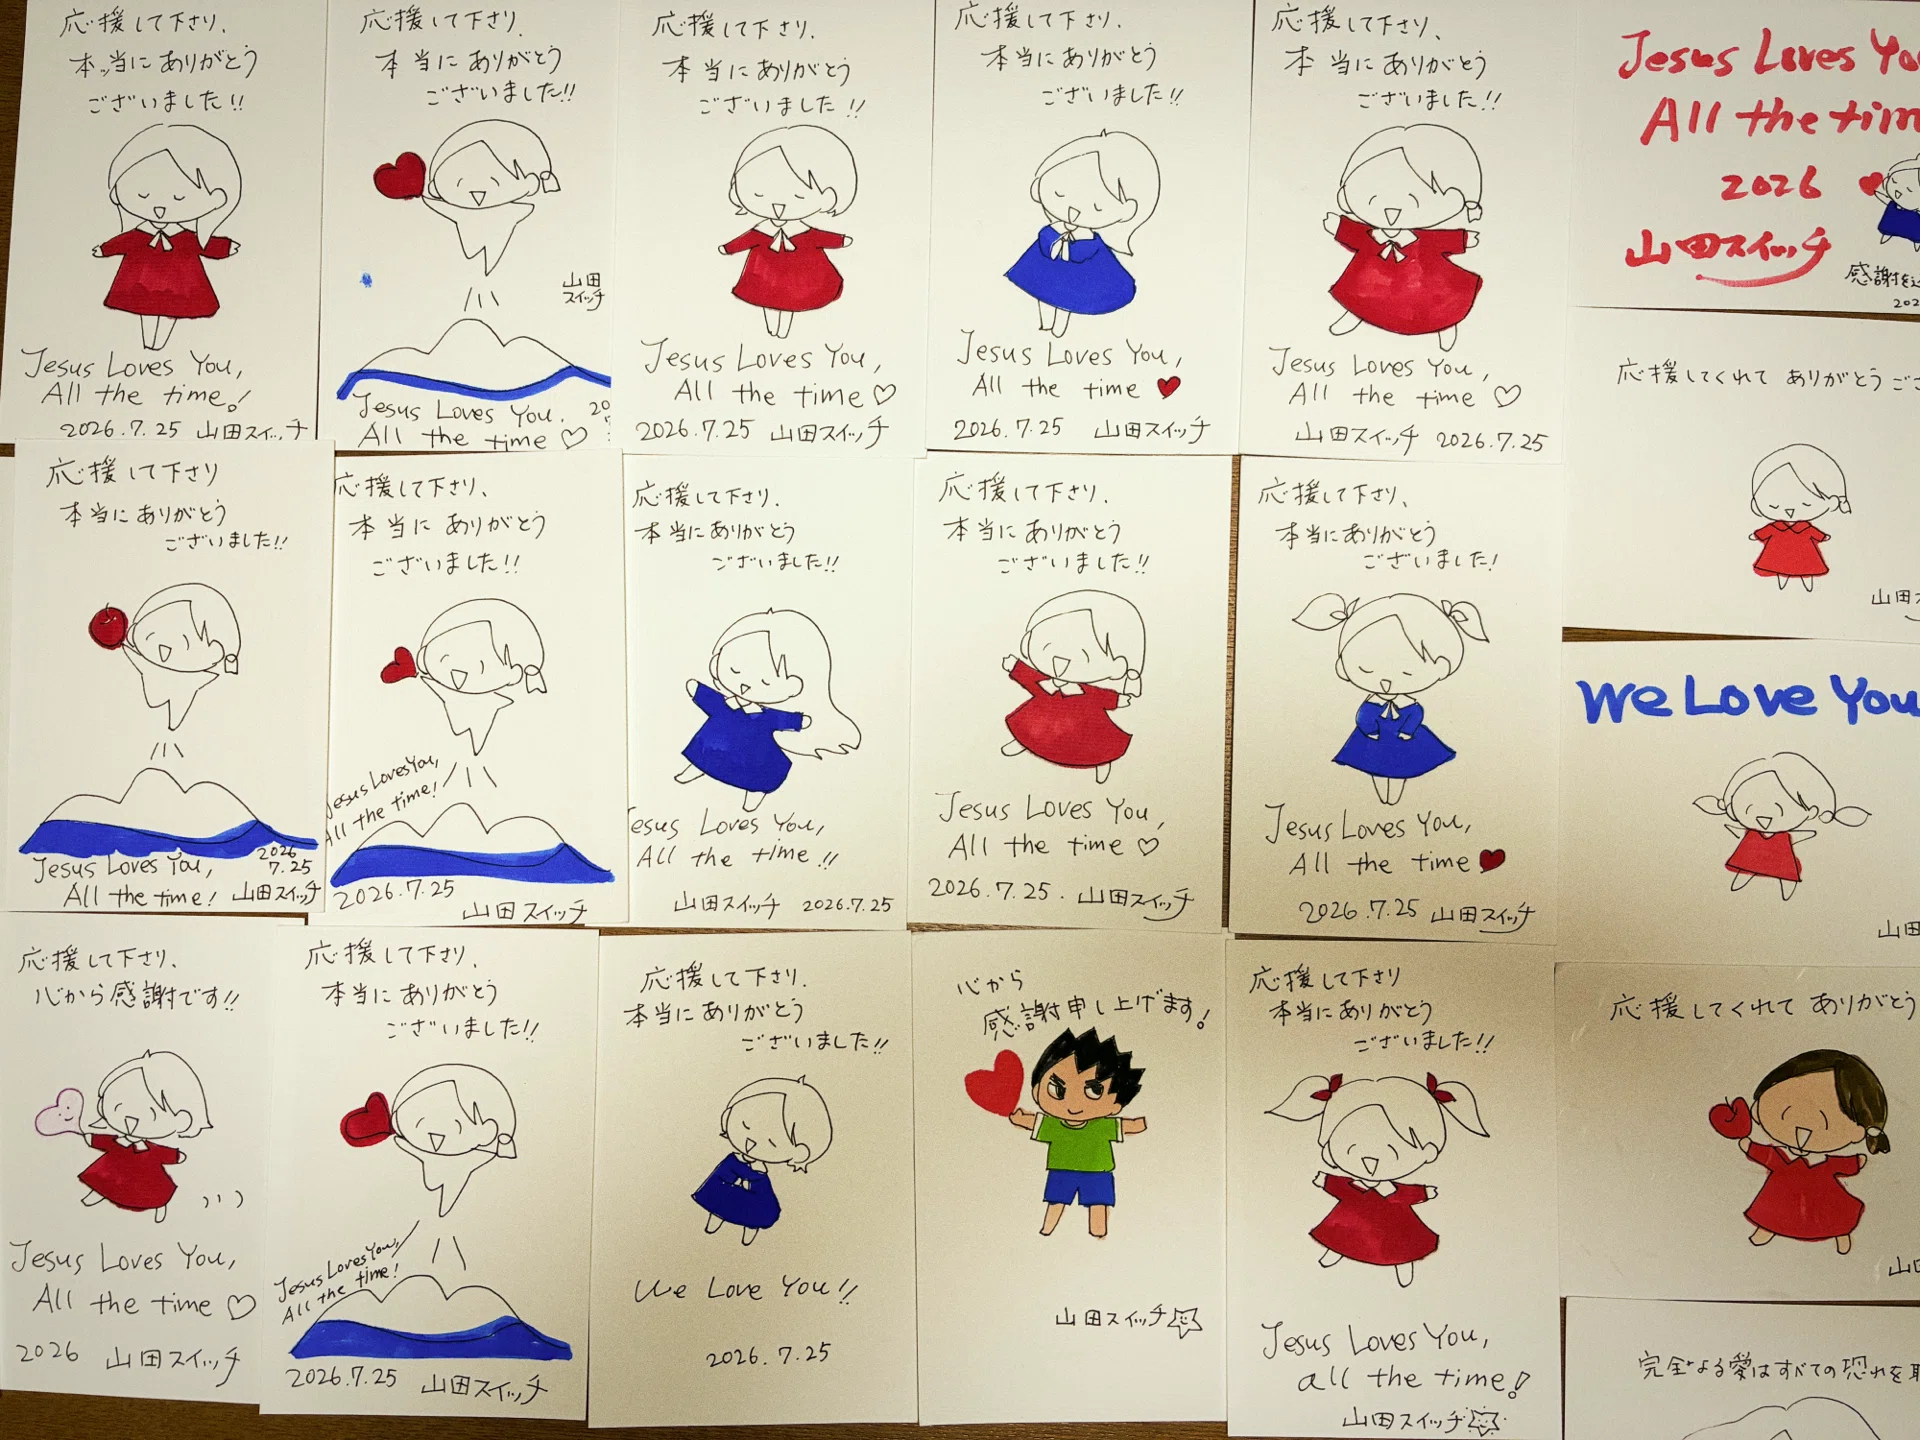 応援して下さり、
本当にありがとう
ございました!!
Jesus Loves You,
All the time!
2026.7.25 山田スイッチ
応援して下さり、
本当にありがとう
ございました!!
山田
スイッチ
Jesus Loves You.
All the time♡
応援して下さり、
本当にありがとう
ございました!!
Jesus Loves You,
All the time♡
2026.7.25 山田スイッチ
応援して下さり、
本当にありがとう
ございました!!
Jesus Loves You,
All the time♥
2026.7.25 山田スイッチ
応援して下さり、
本当にありがとう
ございました!!
Jesus Loves You,
All the time♡
山田スイッチ 2026.7.25
Jesus Loves You
All the tim
2026
山田スイッチ
感謝を込
202
応援して下さり
本当にありがとう
ございました!!
Jesus Loves You,
All the time!
2026
7.25
山田スイッチ
応援して下さり、
本当にありがとう
ございました!!
Jesus Loves You,
All the time!
2026.7.25
山田スイッチ
応援して下さり、
本当にありがとう
ございました!!
Jesus Loves You,
All the time!!
山田スイッチ 2026.7.25
応援して下さり、
本当にありがとう
ございました!!
Jesus Loves You,
All the time♡
2026.7.25. 山田スイッチ
応援して下さり、
本当にありがとう
ございました!
Jesus Loves You,
All the time♥
2026.7.25 山田スイッチ
応援してくれて ありがとうござ
山田ス
We Love You
山田
応援して下さり、
心から感謝です!!
Jesus Loves You,
All the time♡
2026 山田スイッチ
応援して下さり、
本当にありがとう
ございました!!
Jesus Loves You,
All the time!
2026.7.25 山田スイッチ
応援して下さり、
本当にありがとう
ございました!!
We Love You!!
2026.7.25
心から
感謝申し上げます!
山田スイッチ
応援して下さり
本当にありがとう
ございました!!
Jesus Loves You,
all the time!
山田スイッチ
応援してくれて ありがとう
山田
完全なる愛はすべての恐れを取